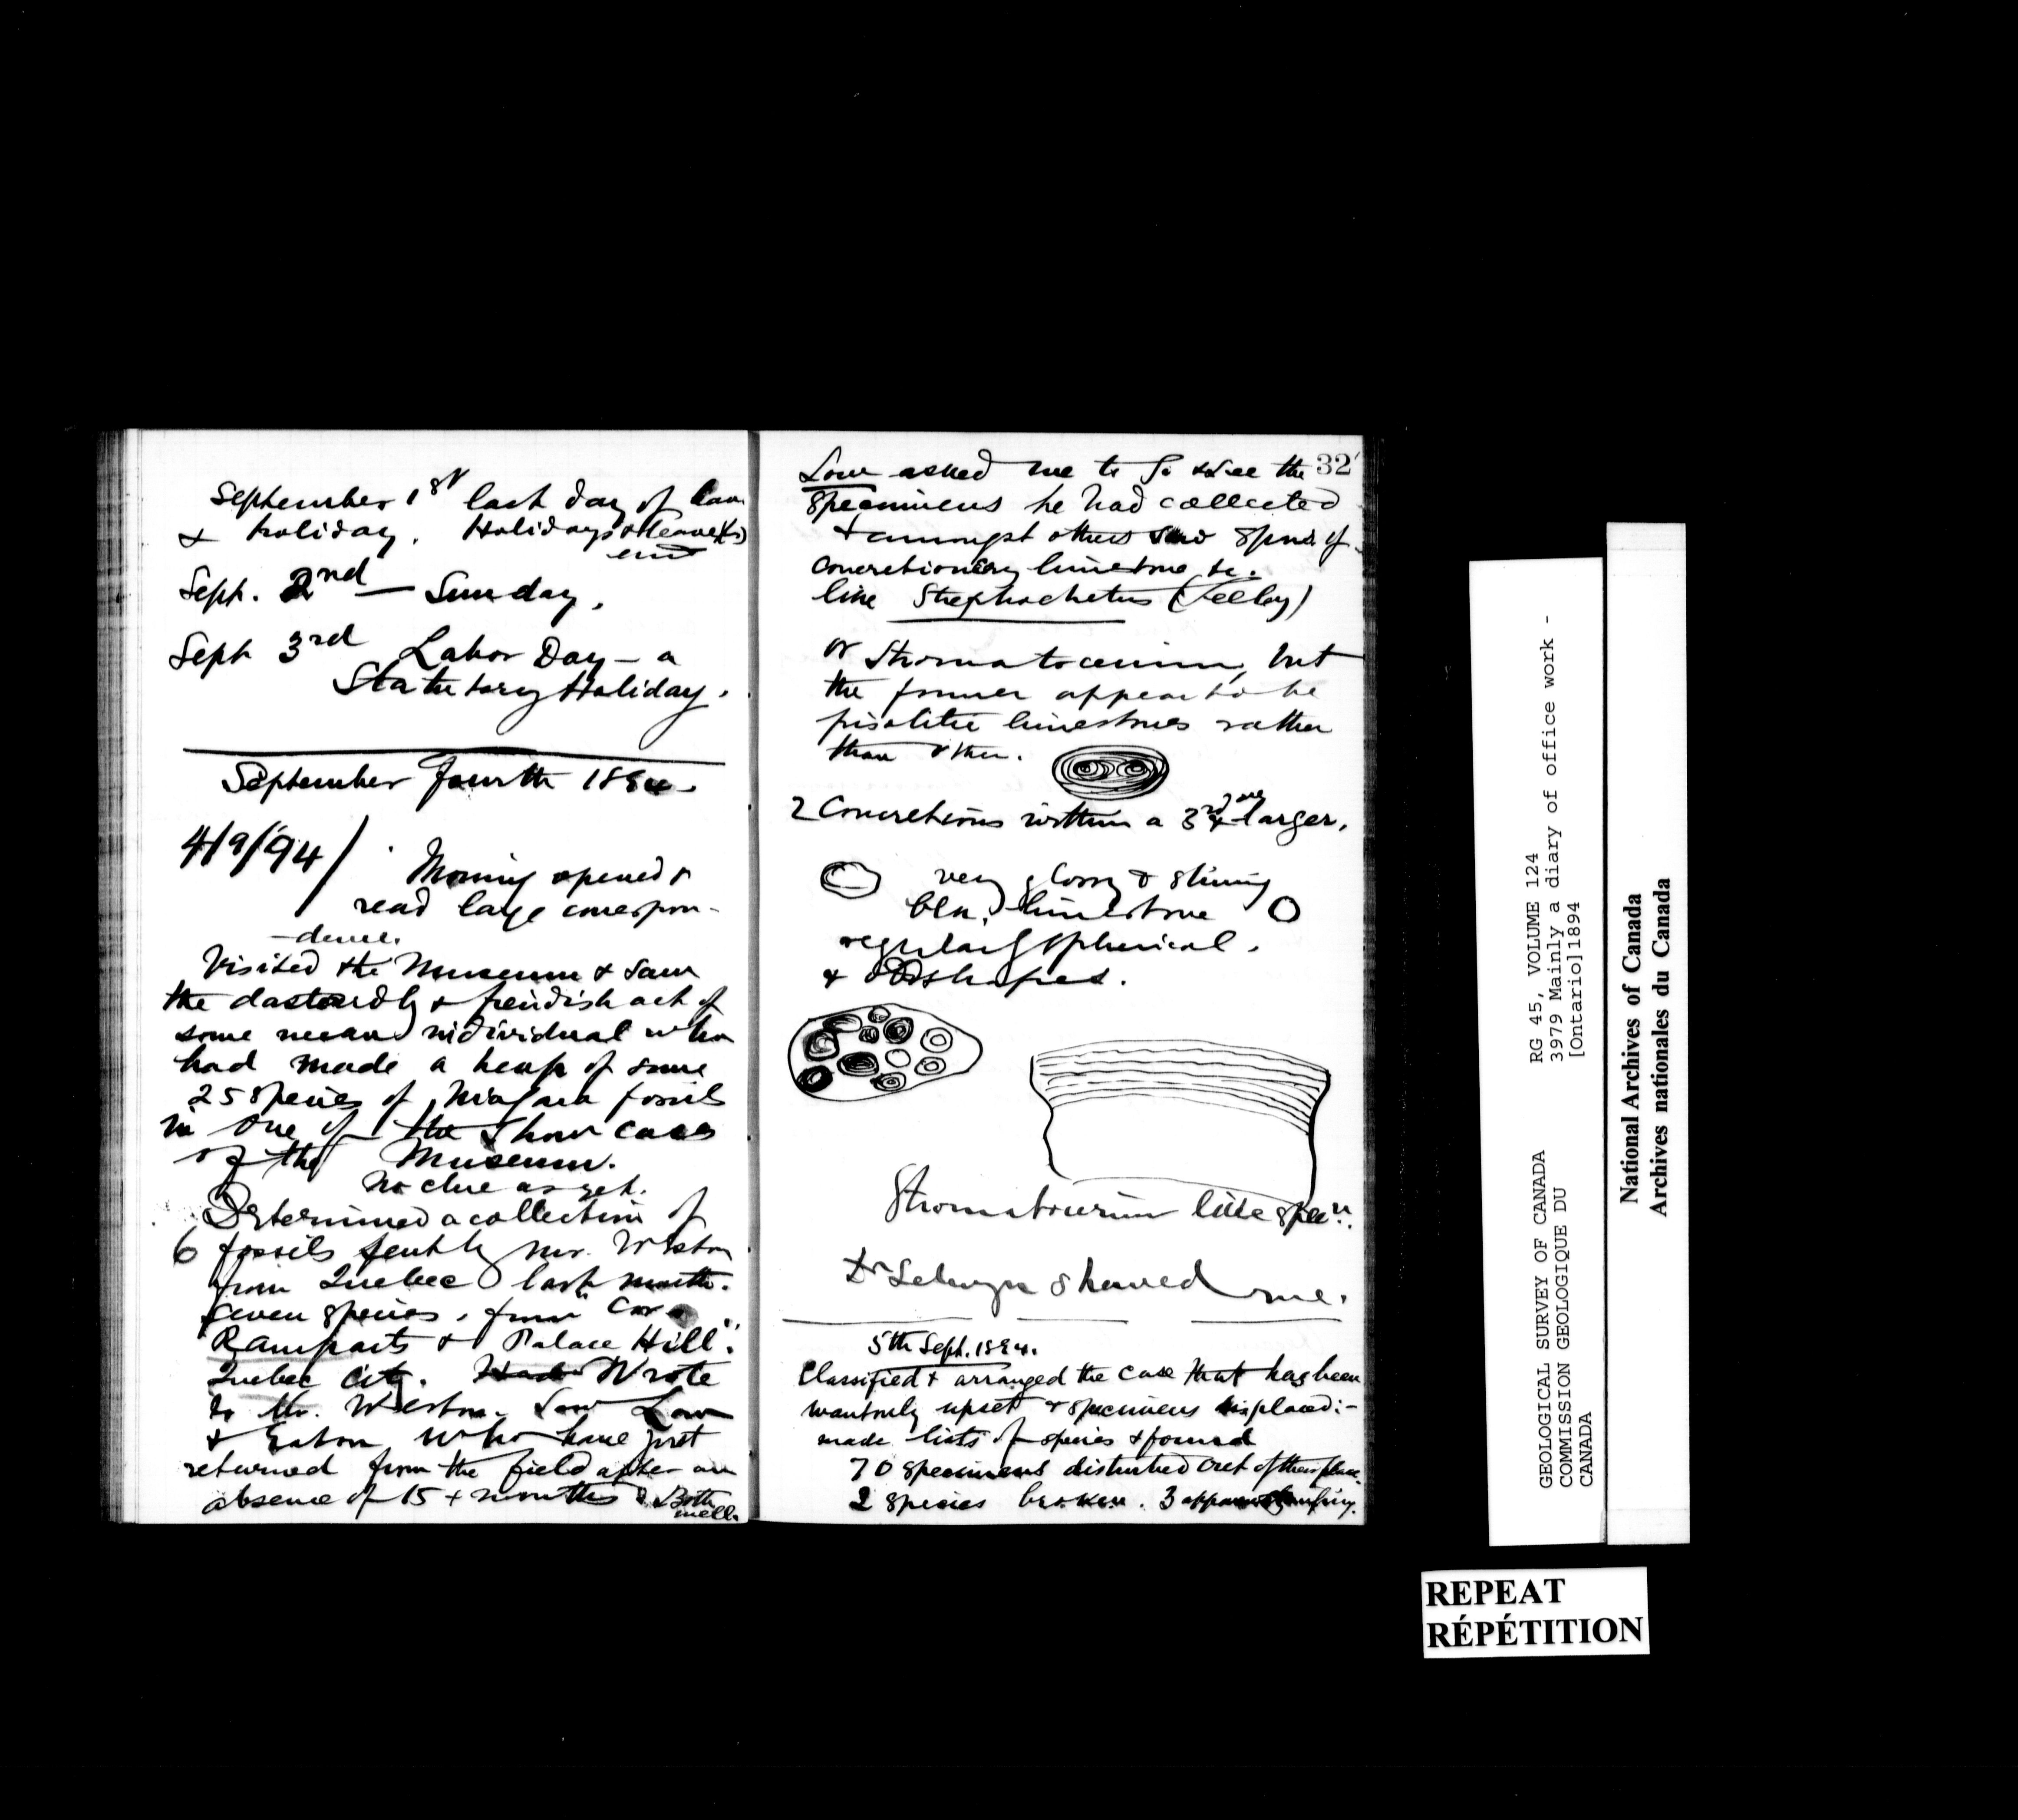 September 1st last day of leave
& holiday. Holidays & leave(s)
end
Sept. 2nd — Sunday.
Sept 3rd Labor Day — a
Statutory Holiday.
September fourth 1894.
4/9/'94/
Morning opened &
read large correspon-
-dence.
Visited the Museum & saw
the dastardly & fiendish act of
some mean individual who
had made a heap of some
25 species of Niagara fossils
in one of the show cases
of the Museum.
No clue as yet.
Determined a collection of
6 fossils sent by Mr. Weston
from Quebec last month.
seven species, from "Cor
Ramparts & Palace Hill".
Quebec City. Had Wrote
to Mr. Weston. Saw Low
& Eaton who have just
returned from the field after an
absence of 15 + months & Both
well.
32
Low asked me to go & see the
specimens he had collected
& amongst others saw spns of
concretionary limestone &c.
like Strephochetus (Seeley)
or Stromatocerium, but
the former appear to be
pisolitic limestones rather
than other.
2 Concretions within a 3rd & larger.
one
very glossy & shining
blk. limestone
regularly spherical.
& odd shapes.
Stromatocerium like specn.
Dr Selwyn showed me.
5th Sept. 1894.
Classified & arranged the case that has been
wantonly upset & specimens misplaced:-
made lists of species & found
70 specimens disturbed out of their place.
2 species broken. 3 apparently
GEOLOGICAL SURVEY OF CANADA
COMMISSION GEOLOGIQUE DU
CANADA
RG 45, VOLUME 124
3979 Mainly a diary of office work -
[Ontario]1894
National Archives of Canada
Archives nationales du Canada
REPEAT
RÉPÉTITION